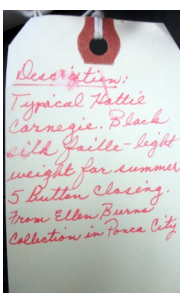 Description:
Typical Hattie
Carnegie. Black
silk faille - light
weight for summer
5 button closing.
From Ellen Burns
Collection in Ponca City